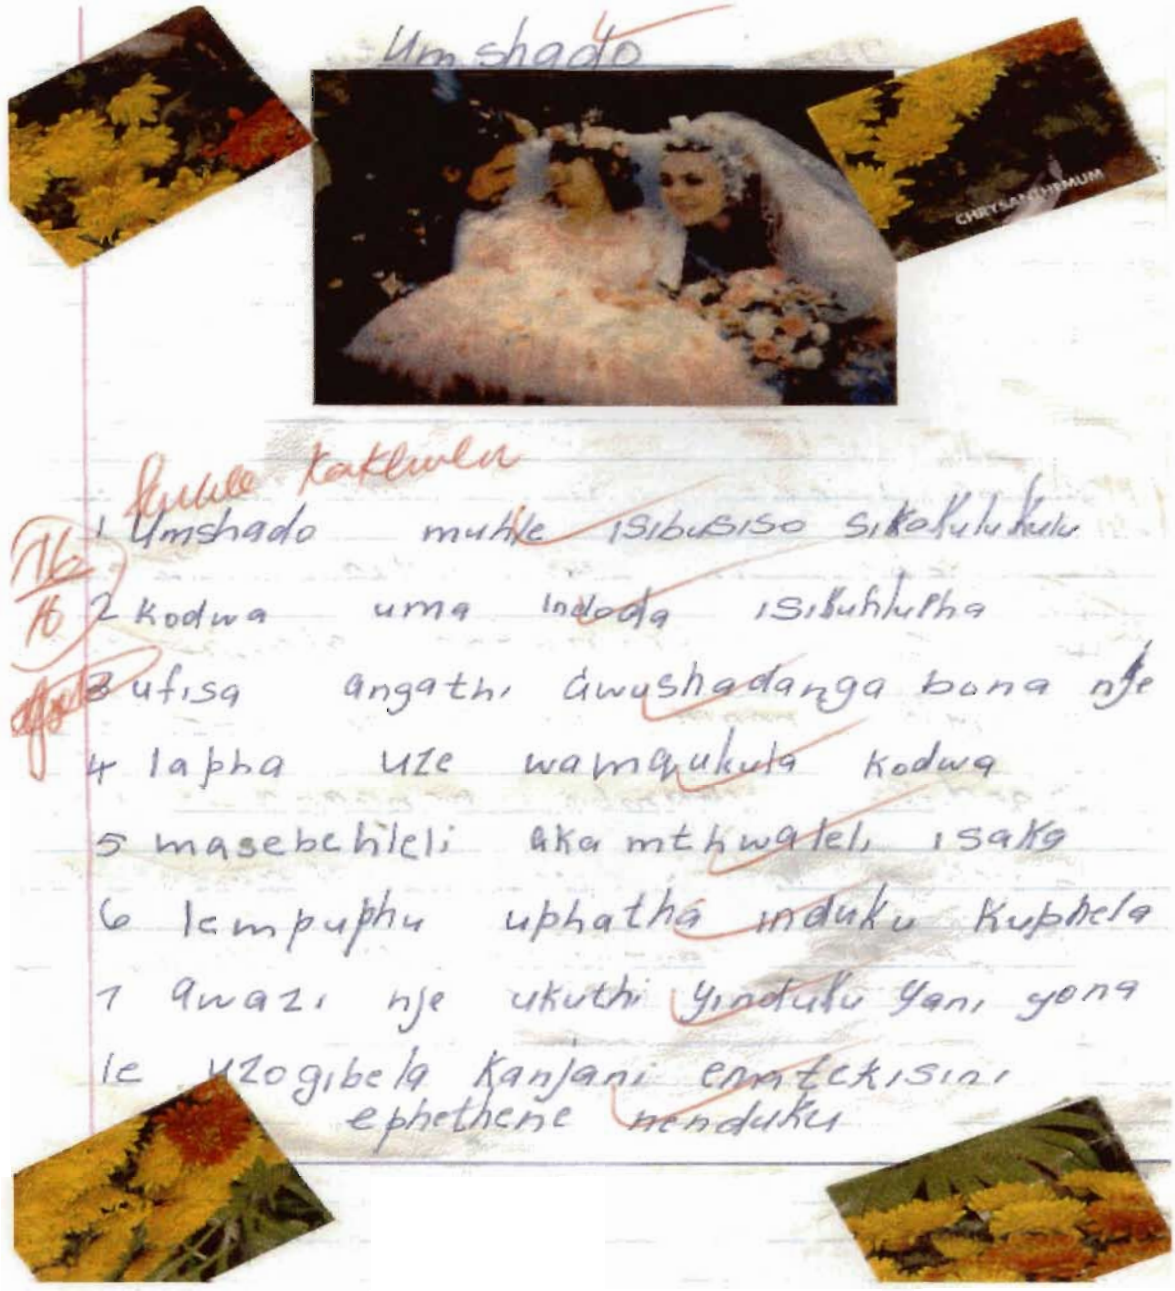 Umshado
CHRYSANTHEMUM
kakhulu
1 Umshado muhle isibusiso sikakulukulu
16
16
2 kodwa uma indoda isikuhlupha
3 ufisa angathi awushadanga bona nje
4 lapha uze wamqukula kodwa
5 masebehleli akamthwaleli isaka
6 lempuphu uphatha induku kuphela
7 awazi nje ukuthi yinduku yani yona
le uzogibela kanjani ematekisini
ephethene nenduku